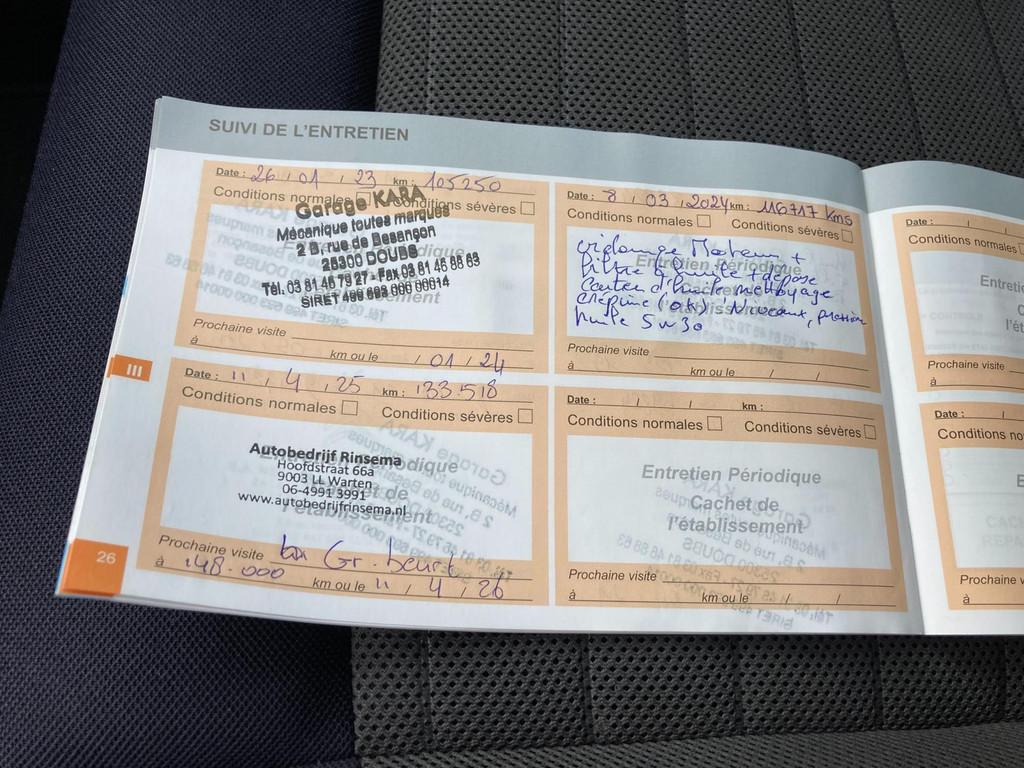 SUIVI DE L'ENTRETIEN
Date : 26 / 01 / 23 km : 105250
Conditions normales Conditions sévères
Garage KARA
Mécanique toutes marques
2 B, rue de Besançon
25300 DOUBS
Tél. 03 81 46 79 27 - Fax 03 81 46 88 63
Prochaine visite
à km ou le / 01 / 24
Date : 8 / 03 / 2024 km : 116717 kms
Conditions normales Conditions sévères
vidange Moteur +
filtre à huile + dépose
Carter d'huile nettoyage
crépine (ok) Niveaux, pression
huile 5w30
Prochaine visite
à km ou le / /
III
Date : 11 / 4 / 25 km : 133.518
Conditions normales Conditions sévères
Autobedrijf Rinsema
Hoofdstraat 66a
9003 LL Warten
06-4991 3991
www.autobedrijfrinsema.nl
Prochaine visite Gr. beurt
à 148.000 km ou le 11 / 4 / 26
Date : / / / km :
Conditions normales Conditions sévères
Entretien Périodique
Cachet de
l'établissement
Prochaine visite
à km ou le / /
26
Date : / /
Conditions normales
Prochaine
à
Date : /
Conditions no
Prochaine v
à